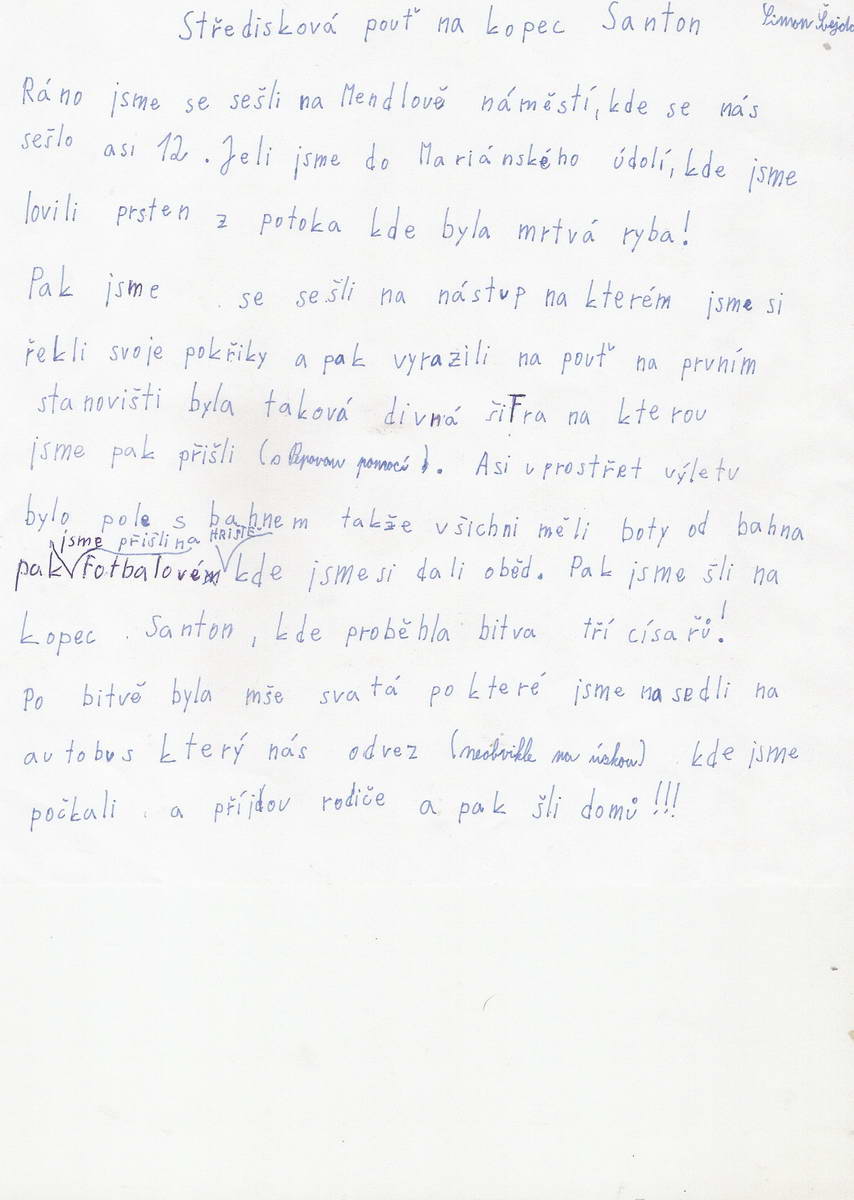 Středisková pouť na kopec Santon Šimon
Ráno jsme se sešli na Mendlově náměstí, kde se nás
sešlo asi 12. Jeli jsme do Mariánského údolí, kde jsme
lovili prsten z potoka kde byla mrtvá ryba!
Pak jsme se sešli na nástup na kterém jsme si
řekli svoje pokřiky a pak vyrazili na pouť na prvním
stanovišti byla taková divná šiFra na kterou
jsme pak přišli (s pomocí). Asi uprostřet výletu
bylo pole s bahnem takže všichni měli boty od bahna
jsme přišli na HŘIŠTĚ
pak Fotbalovém kde jsme si dali oběd. Pak jsme šli na
kopec. Santon, kde proběhla bitva tří císařů!
Po bitvě byla mše svatá po které jsme nasedli na
autobus který nás odvez (neobvikle na) kde jsme
počkali a příjdou rodiče a pak šli domů!!!